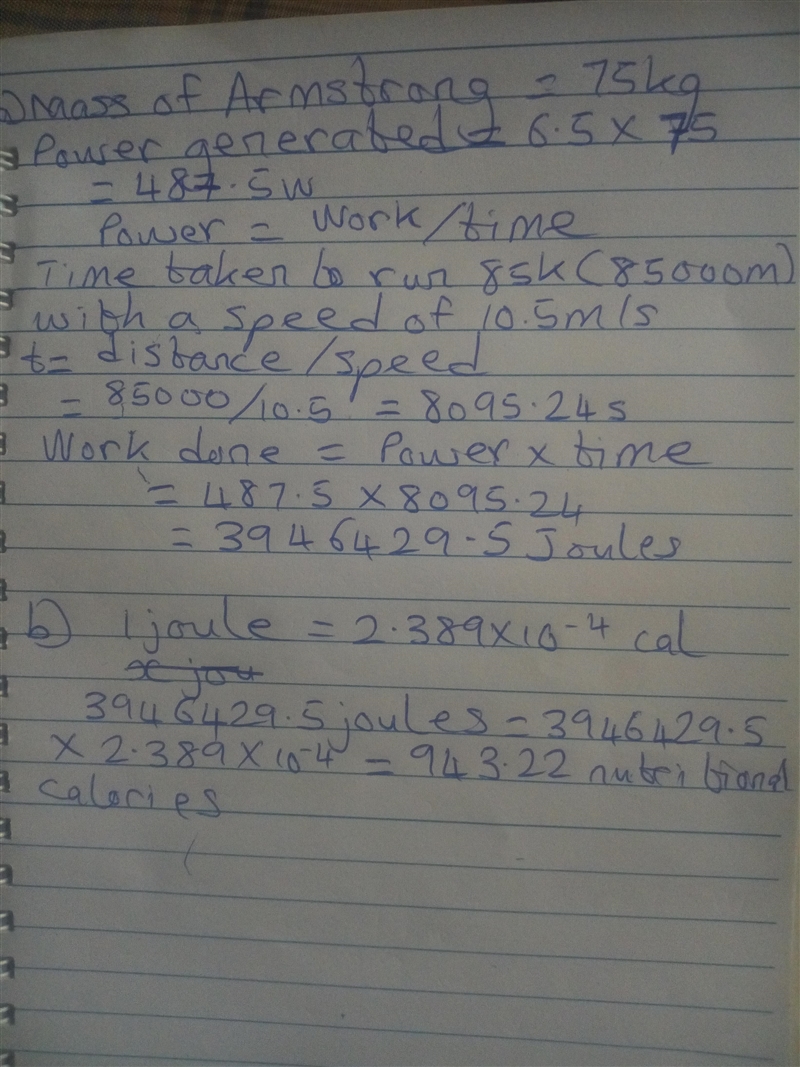 a) Mass of Armstrong = 75kg
Power generated = 6.5 x 75
= 487.5w
Power = Work/time
Time taken to run 85k(85000m)
with a speed of 10.5m/s
t= distance/speed
= 85000/10.5 = 8095.24s
Work done = Power x time
= 487.5 x 8095.24
= 3946429.5 Joules
b) 1 joule = 2.389x10⁻⁴ cal
x jou
3946429.5 joules = 3946429.5
x 2.389 x 10⁻⁴ = 943.22 nutritional
calories